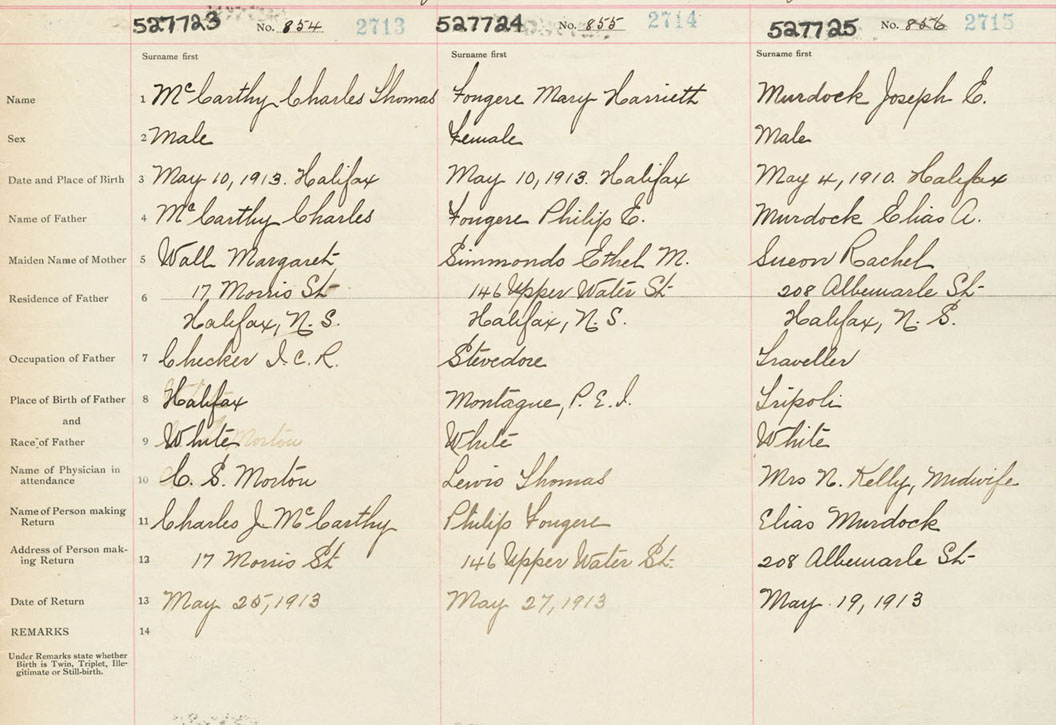 527723 No. 854 2713 527724 No. 855 2714 527725 No. 856 2715
Surname first Surname first Surname first
Name 1 McCarthy Charles Thomas Fougere Mary Harrieth Murdock Joseph E.
Sex 2 Male Female Male
Date and Place of Birth 3 May 10, 1913. Halifax May 10, 1913. Halifax May 4, 1910. Halifax
Name of Father 4 McCarthy Charles Fougere Philip E. Murdock Elias A.
Maiden Name of Mother 5 Wall Margaret Simmonds Ethel M. Rachel
Residence of Father 6 17 Morris St 146 Upper Water St 208 Albemarle St
Halifax, N.S. Halifax, N.S. Halifax, N.S.
Occupation of Father 7 Checker I.C.R. Stevedore Traveller
Place of Birth of Father 8 Halifax Montague, P.E.I. Tripoli
and
Race of Father 9 White Morton White White
Name of Physician in
attendance 10 C. S. Morton Lewis Thomas Mrs N. Kelly, Midwife
Name of Person making
Return 11 Charles J. McCarthy Philip Fougere Elias Murdock
Address of Person mak-
ing Return 12 17 Morris St 146 Upper Water St. 208 Albemarle St
Date of Return 13 May 25, 1913 May 27, 1913 May 19, 1913
REMARKS 14
Under Remarks state whether
Birth is Twin, Triplet, Ille-
gitimate or Still-birth.